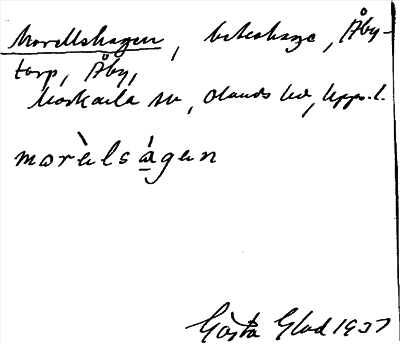 Morellshagen, beteshage, Åby-
torp, Åby,
Morkarla sn, Olands hd, Upps. l.
morèlságen
Gösta Glad 1937